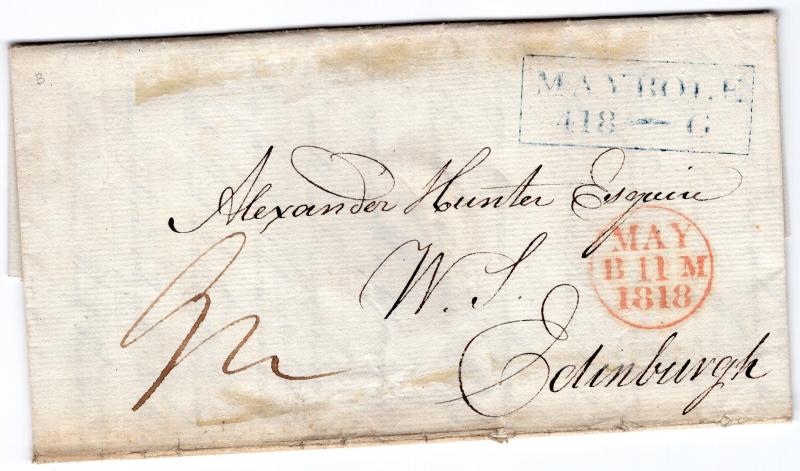 B.
MAYBOLE
418 — G
Alexander Hunter Esquire
W. S.
Edinburgh
MAY
B 11 M
1818